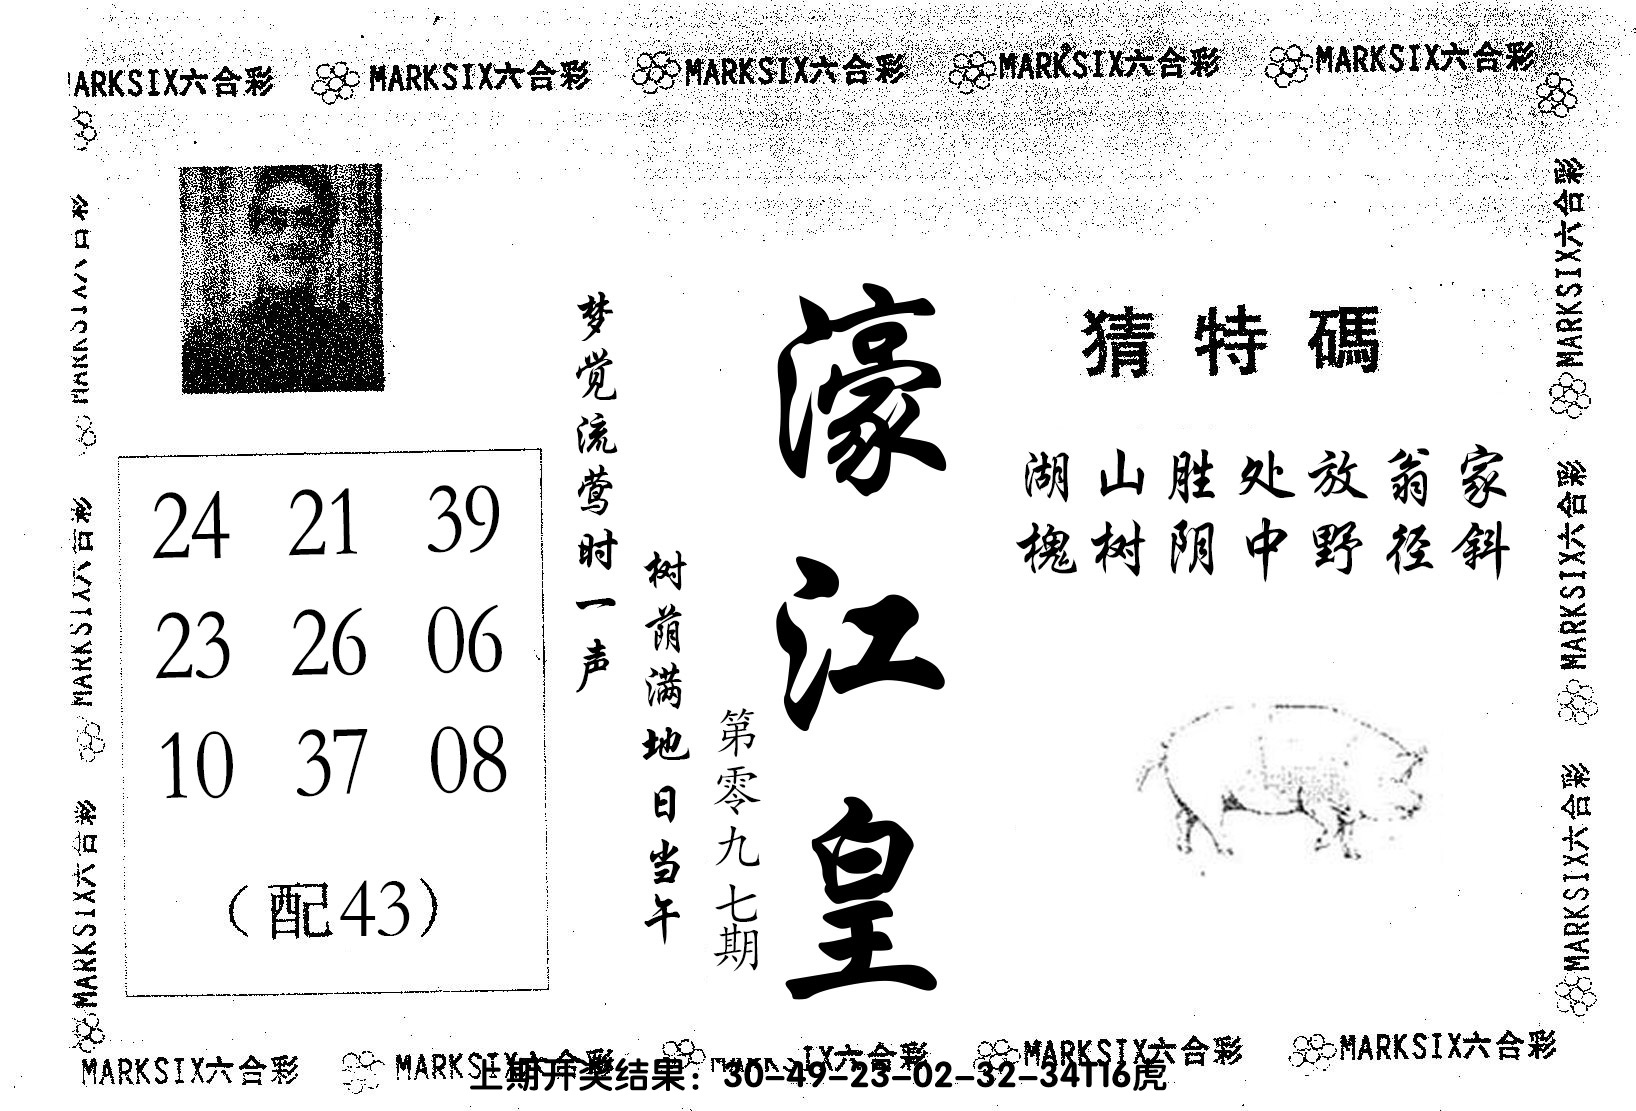 MARKSIX六合彩 MARKSIX六合彩 MARKSIX六合彩 MARKSIX六合彩 MARKSIX六合彩
猜特碼
湖山胜处放翁家
槐树阴中野径斜
濠江皇
第零九七期
梦觉流莺时一声
树荫满地日当午
24 21 39
23 26 06
10 37 08
（配43）
MARKSIX六合彩
MARKSIX六合彩
MARKSIX六合彩
MARKSIX六合彩
MARKSIX六合彩
MARKSIX六合彩
MARKSIX六合彩 MARKSIX六合彩 MARKSIX六合彩 MARKSIX六合彩 MARKSIX六合彩
上期开奖结果：30-49-23-02-32-34T16虎